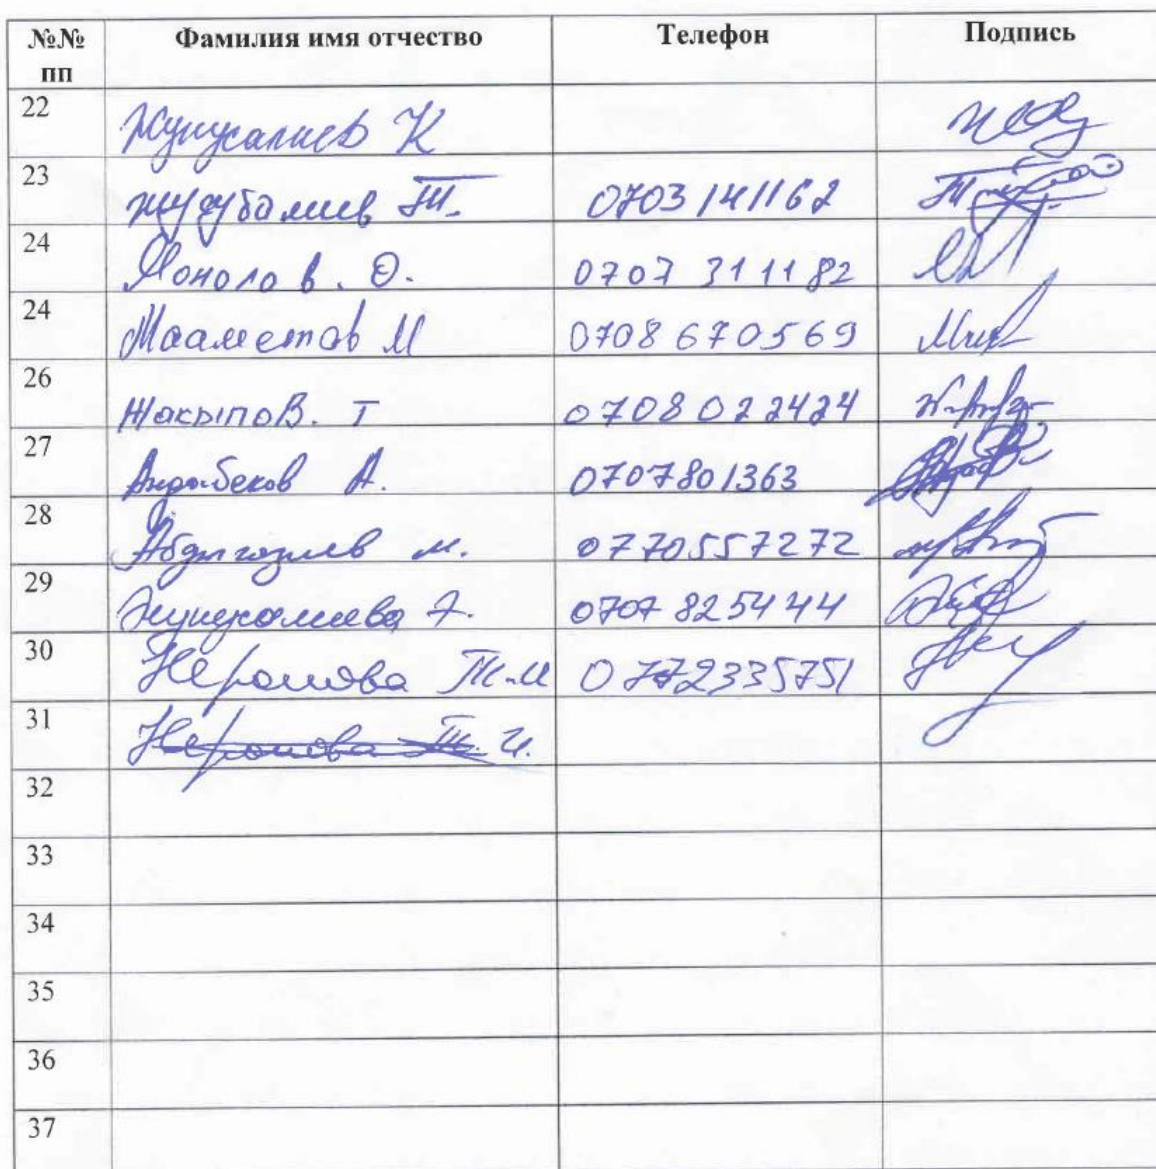 №№ пп Фамилия имя отчество Телефон Подпись
22 Жунусалиев К
23 Жусубалиев Т. 0703 141162
24 Монолов. О. 0707 311182
24 Мааметов М 0708 670569
26 Жакыпов. Т 0708 022424
27 Андабеков А. 0707801363
28 Абдыгазиев м. 0770557272
29 Жунусалиева 0707 825444
30 Неронова Т.И 0772335751
31 Неронова Т. И.
32
33
34
35
36
37